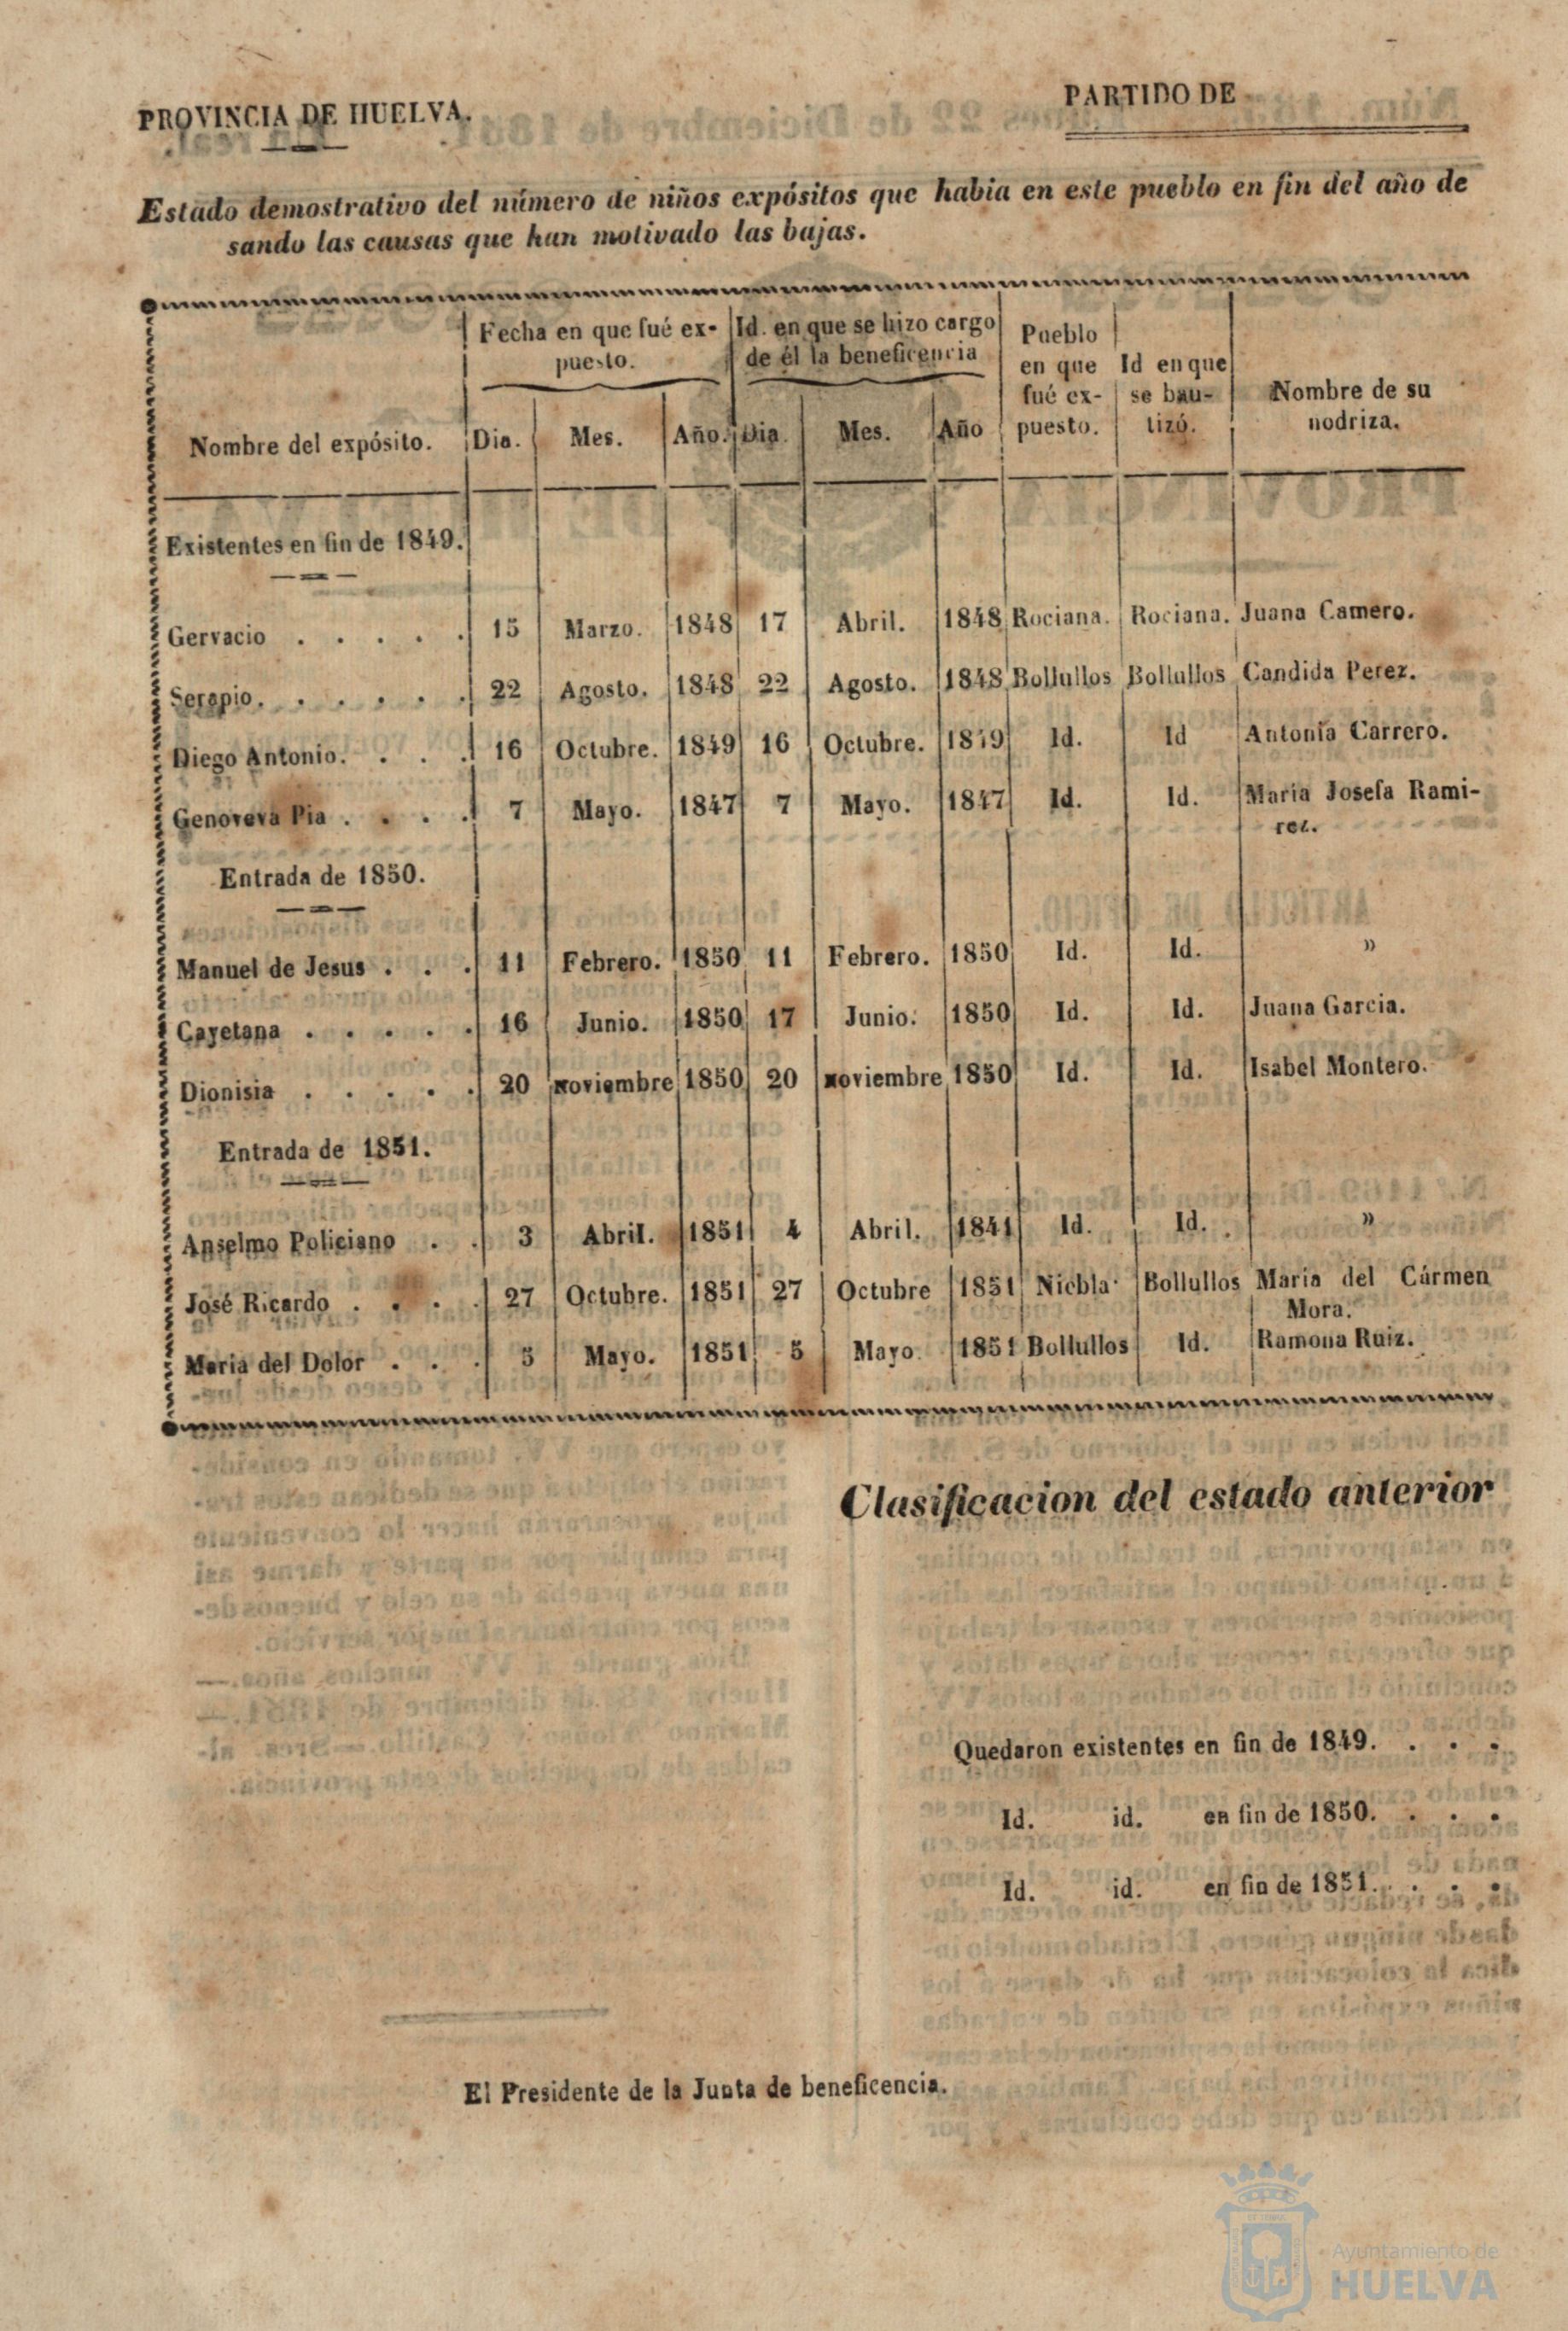 PROVINCIA DE HUELVA.
PARTIDO DE
Estado demostrativo del número de niños expósitos que habia en este pueblo en fin del año de
sando las causas que han motivado las bajas.
Fecha en que fué ex- Id. en que se hizo cargo Pueblo
puesto. de él la beneficencia en que Id en que
fué ex- se bau- Nombre de su
Nombre del expósito. Dia. Mes. Año. Dia. Mes. Año puesto. tizó. nodriza.
Existentes en fin de 1849.
Gervacio . . . . . 15 Marzo. 1848 17 Abril. 1848 Rociana. Rociana. Juana Camero.
Serapio. . . . . . 22 Agosto. 1848 22 Agosto. 1848 Bollullos Bollullos Candida Perez.
Diego Antonio. . . . 16 Octubre. 1849 16 Octubre. 1849 Id. Id Antonia Carrero.
Genoveva Pia . . . . 7 Mayo. 1847 7 Mayo. 1847 Id. Id. Maria Josefa Rami-
rez.
Entrada de 1850.
Manuel de Jesus . . . 11 Febrero. 1850 11 Febrero. 1850 Id. Id. »
Cayetana . . . . . 16 Junio. 1850 17 Junio. 1850 Id. Id. Juana Garcia.
Dionisia . . . . . 20 noviembre 1850 20 noviembre 1850 Id. Id. Isabel Montero.
Entrada de 1851.
Anselmo Policiano . . 3 Abril. 1851 4 Abril. 1841 Id. Id. »
José Ricardo . . . . 27 Octubre. 1851 27 Octubre 1851 Niebla Bollullos Maria del Cármen
Mora.
Maria del Dolor . . . 5 Mayo. 1851 5 Mayo. 1851 Bollullos Id. Ramona Ruiz.
Clasificacion del estado anterior
Quedaron existentes en fin de 1849. . . .
Id. id. en fin de 1850. . . .
Id. id. en fin de 1851. . . .
El Presidente de la Junta de beneficencia.
Ayuntamiento de
HUELVA